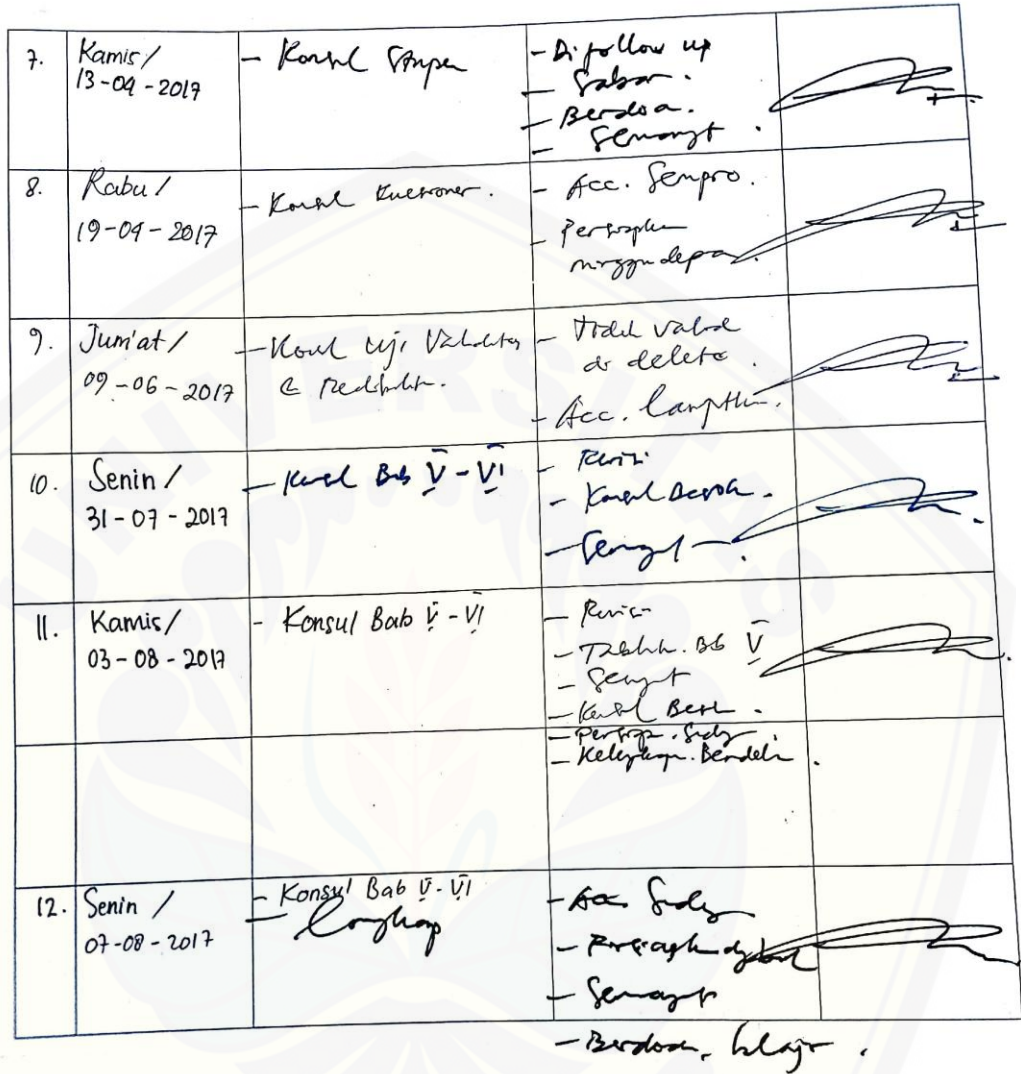 7.
Kamis/
13-04-2017
- Konsul
- Di follow up
- Sabar.
- Berdoa.
- Semangat.
8.
Rabu/
19-04-2017
- Konsul Kuesioner.
- Acc. Sempro.
- Persiapkan
minggu depan.
9.
Jum'at/
09-06-2017
- Konsul Uji Validitas
&
- Tidak valid
di delete.
- Acc.
10.
Senin/
31-07-2017
- Konsul Bab V-VI
- Revisi
- Konsul
- Semangat
11.
Kamis/
03-08-2017
- Konsul Bab V-VI
- Revisi
- Bab V
- Semangat
- Konsul
- Persiap. Sidang.
- Kelengkapan. Bendel.
UNIVERSITAS
12.
Senin/
07-08-2017
- Konsul Bab V-VI
- Lengkap
- Acc. Sidang
- Persiapkan
- Semangat
- Berdoa, belajar.